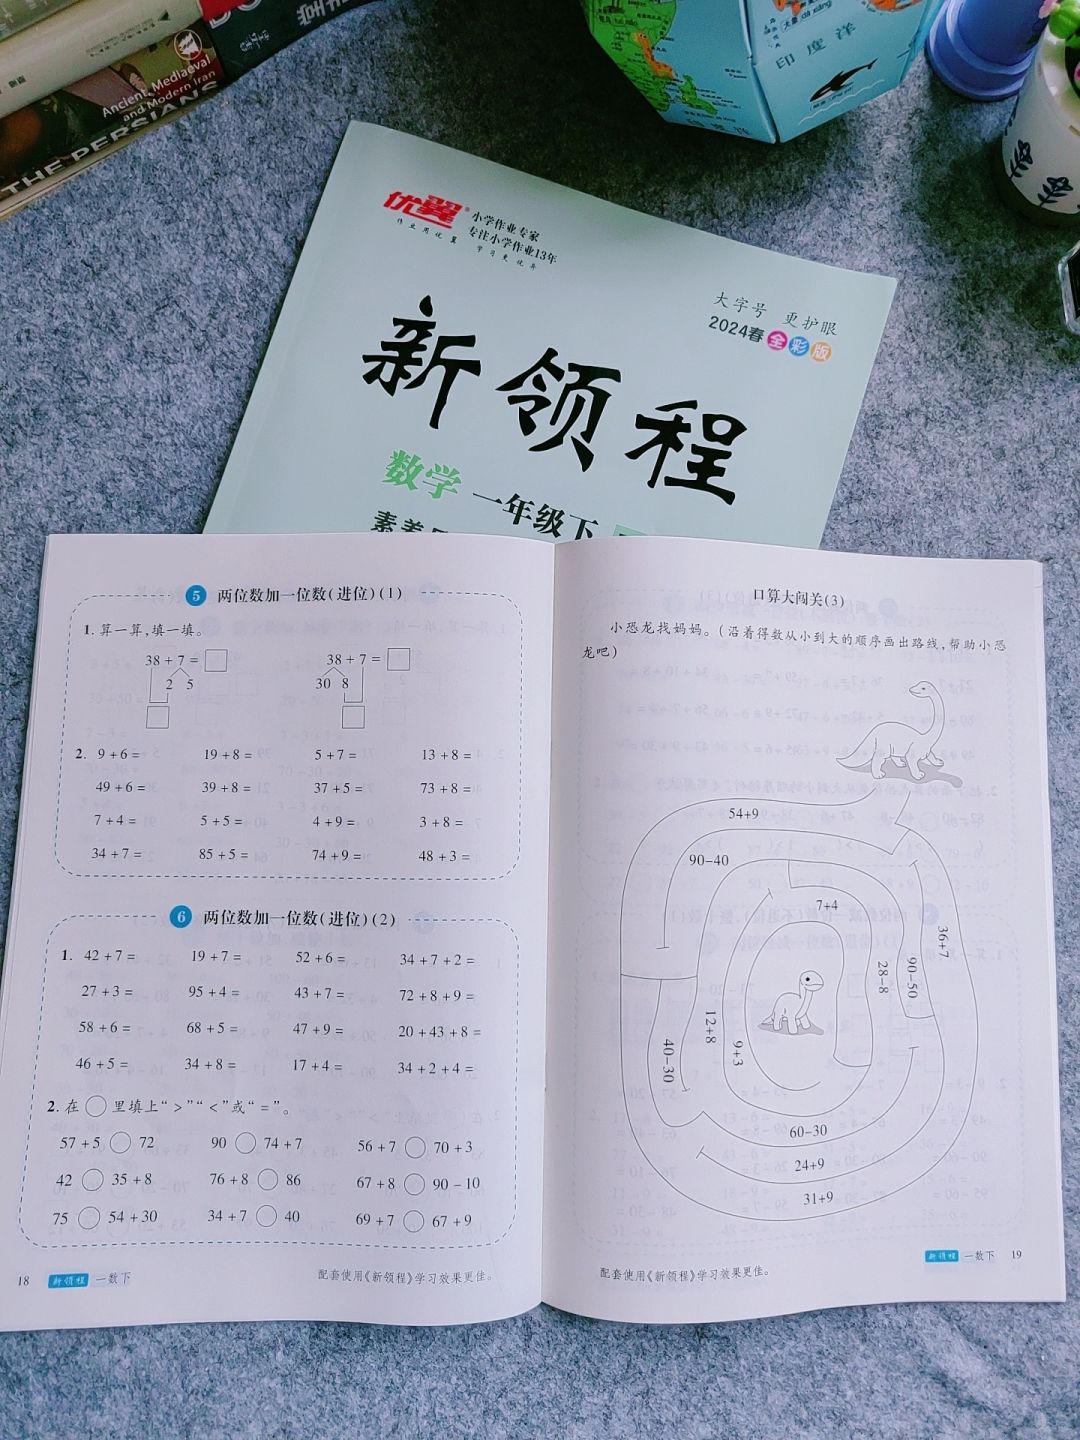 Ancient, Mediaeval
and Modern Iran
THE PERSIANS
印度洋
优翼
作业用优翼 学习更优异
小学作业专家
专注小学作业13年
大字号 更护眼
2024春 全彩版
新领程
数学 一年级下
素养
5 两位数加一位数(进位)(1)
1. 算一算,填一填。
38+7= 38+7=
2 5 30 8
2. 9+6= 19+8= 5+7= 13+8=
49+6= 39+8= 37+5= 73+8=
7+4= 5+5= 4+9= 3+8=
34+7= 85+5= 74+9= 48+3=
6 两位数加一位数(进位)(2)
1. 42+7= 19+7= 52+6= 34+7+2=
27+3= 95+4= 43+7= 72+8+9=
58+6= 68+5= 47+9= 20+43+8=
46+5= 34+8= 17+4= 34+2+4=
2. 在○里填上“>”“<”或“=”。
57+5○72 90○74+7 56+7○70+3
42○35+8 76+8○86 67+8○90-10
75○54+30 34+7○40 69+7○67+9
18 新领程 一数下 配套使用《新领程》学习效果更佳。
口算大闯关(3)
小恐龙找妈妈。(沿着得数从小到大的顺序画出路线,帮助小恐
龙吧)
54+9
90-40
7+4
36+7
90-50
28-8
12+8
9+3
40-30
60-30
24+9
31+9
新领程 一数下 19
配套使用《新领程》学习效果更佳。